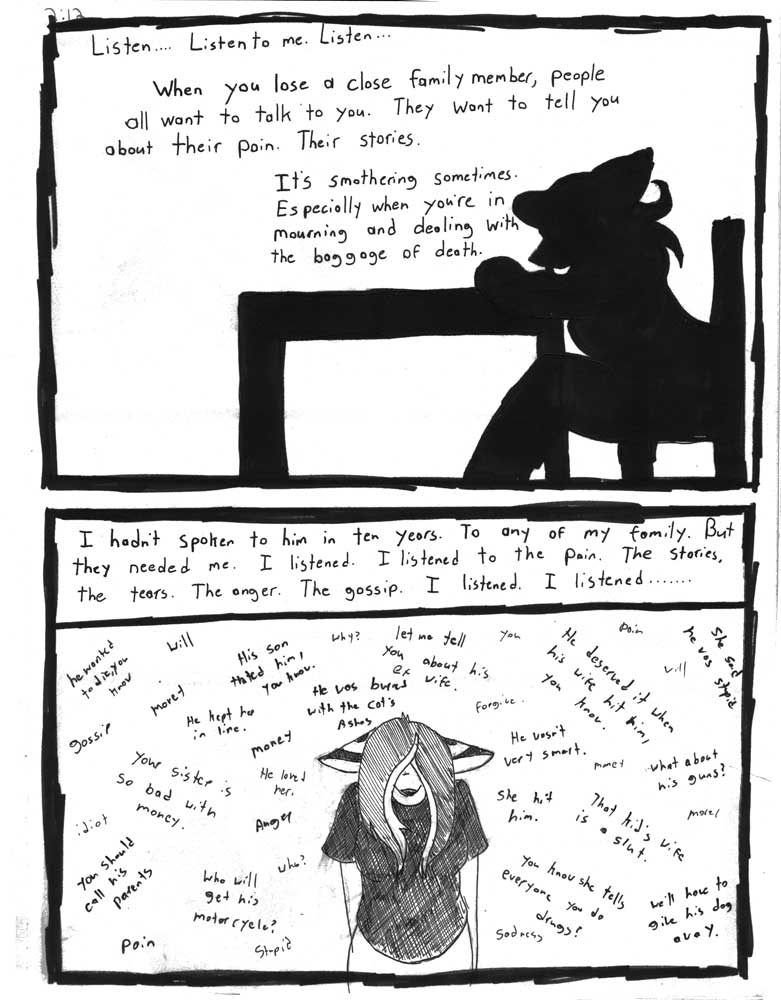 Listen.... Listen to me. Listen...
When you lose a close family member, people
all want to talk to you. They want to tell you
about their pain. Their stories.
It's smothering sometimes.
Especially when you're in
mourning and dealing with
the baggage of death.
I hadn't spoken to him in ten years. To any of my family. But
they needed me. I listened. I listened to the pain. The stories,
the tears. The anger. The gossip. I listened. I listened.......
he wanted
to die, you
know
will
His son
Hated him,
you know.
why?
let me tell
you about his
ex wife.
you
He deserved it when
his wife hit him,
you know.
pain
She said
he was stupid
will
money
gossip
He kept her
in line.
He was buried
with the cat's
Ashes
Forgive.
money
He wasn't
very smart.
money
what about
his guns?
Your sister is
so bad with
money.
He loved
her.
Anger
She hit
him.
That kid's wife
is a slut.
money
idiot
You should
call his
parents
who?
who will
get his
motorcycle?
You know she tells
everyone you do
drugs?
we'll have to
give his dog
away.
Pain
Stupid
Sadness